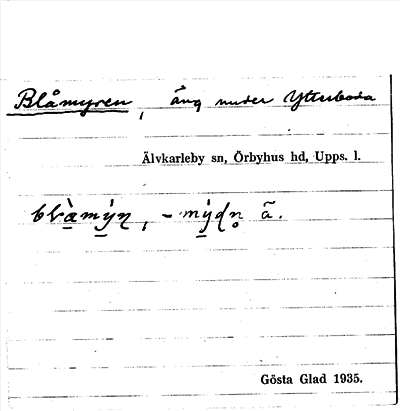 Blåmyren, äng under Ytterboda
Älvkarleby sn, Örbyhus hd, Upps. l.
ã.
Gösta Glad 1935.